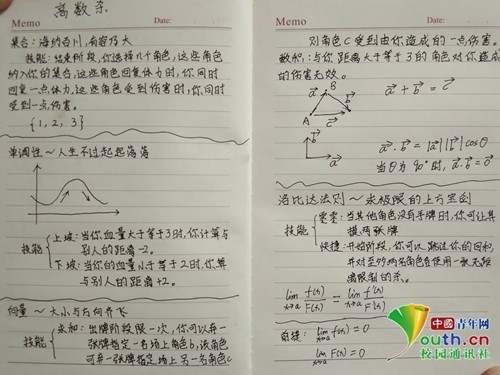 离数杀
Memo
Date:
集合:海纳百川,有容乃大
技能:结束阶段,你选择n个角色,这些角色
纳入你的集合,这些角色回复体力时,你同时
回复一点体力,这些角色受到伤害时,你同时
受到一点伤害。
{1, 2, 3}
单调性~人生不过起起落落
技能
上坡:当你血量大于等于3时,你计算与
别人的距离-2。
下坡:当你的血量小于等于2时,你算
与别人的距离+2。
向量~大小与方向齐飞
技能
求和:出牌阶段限一次,你可以弃一
张牌指定一名场上角色b,该角色
可弃一张牌指定场上另一名角色c
Memo
Date:
则角色c受到由你造成的一点伤害。
数积:与你距离大于等于3的角色对你造成
的伤害无效。
A B C
a b c
a + b = c
a b
a · b = |a||b|cosθ
当θ为90°时,a·b=0
洛比达法则~求极限的上方宝剑
技能
零零:当其他角色没有手牌时,你可让其
摸两张牌
快捷:开始阶段,你可以跳过你的回合,
并对至多两名角色各使用一张无距
离限制的杀。
lim x→a f(x)/F(x) = lim x→a f'(x)/F'(x)
前提:lim x→a f(x)=0
lim x→a F(x)=0
中国青年网
Youth.cn
校园通讯社